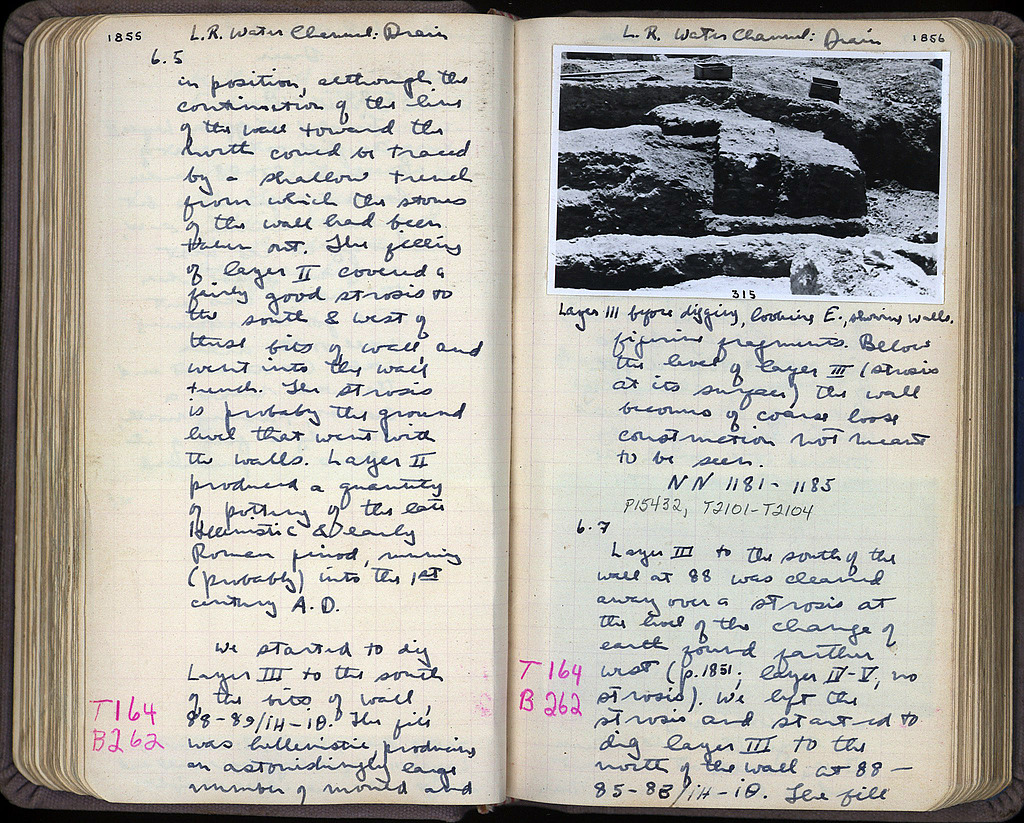 1855
L. R. Water Channel: Drain
6.5
in position, although the
continuation of the line
of the wall toward the
north could be traced
by a shallow trench
from which the stones
of the wall had been
taken out. The filling
of layer II covered a
fairly good strosis to
the south & west of
these bits of wall, and
went into the wall
trench. The strosis
is probably the ground
level that went with
the walls. Layer II
produced a quantity
of pottery of the late
Hellenistic & early
Roman period, running
(probably) into the 1st
century A.D.
We started to dig
Layer III to the south
of the bits of wall,
88-89/ΙΗ-ΙΘ. The fill
was hellenistic, producing
an astonishingly large
number of mould and
T164
B262
L. R. Water Channel: Drain
1856
315
Layer III before digging, looking E., showing walls.
figurine fragments. Below
the level of layer III (strosis
at its surface) the wall
becomes of coarse loose
construction not meant
to be seen.
NN 1181-1185
P15432, T2101-T2104
6.7
Layer III to the south of the
wall at 88 was cleaned
away over a strosis at
the level of the change of
earth found farther
west (p. 1851; layer IV-V, no
strosis). We left the
strosis and started to
dig layer III to the
north of the wall at 88-
85-88/ΙΗ-ΙΘ. The fill
T 164
B 262